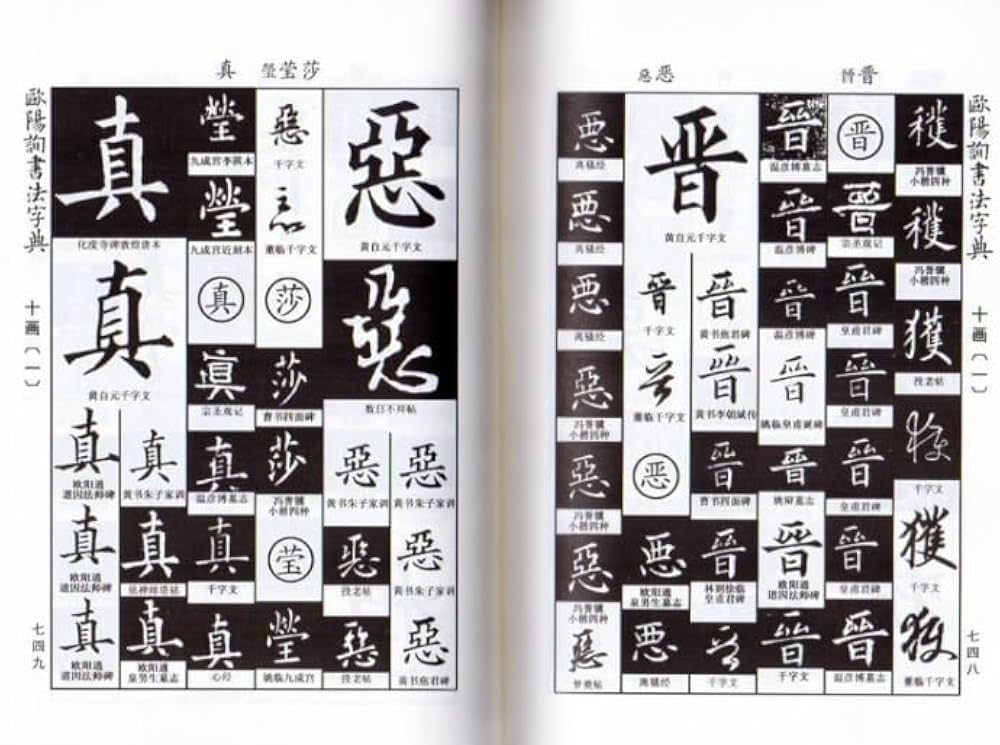 歐陽詢書法字典
十画〔一〕
七四八
晉晋
惡恶
穫
小楷四种
穫
小楷四种
獲
投老帖
千字文
獲
千字文
獲
董临千字文
晋
晉
宗圣观记
晉
皇甫君碑
晉
皇甫君碑
晉
皇甫君碑
晉
皇甫君碑
晉
温彦博墓志
晉
温彦博墓志
晉
温彦博碑
晉
温彦博碑
晉
姚临皇甫诞碑
晉
姚辩墓志
晉
欧阳通
道因法师碑
晉
千字文
晋
黄自元千字文
晉
黄书焦君碑
晉
黄书李朝斌传
晉
曹书四面碑
晉
林则徐临
皇甫君碑
千字文
晉
千字文
董临千字文
恶
悪
欧阳通
泉男生墓志
悪
离骚经
悪
离骚经
悪
离骚经
悪
离骚经
惡
小楷四种
惡
小楷四种
惡
小楷四种
惡
梦奠帖
莎莹瑩
真
惡
黄自元千字文
惡
数日不拜帖
惡
黄书朱子家训
惡
黄书朱子家训
惡
黄书焦君碑
惡
黄书朱子家训
惡
投老帖
惡
投老帖
惡
千字文
董临千字文
莎
莎
曹书四面碑
莎
小楷四种
莹
瑩
姚临九成宫
瑩
九成宫李祺本
瑩
九成宫近刻本
真
眞
宗圣观记
真
温彦博墓志
真
千字文
真
心经
真
化度寺碑敦煌唐本
真
黄自元千字文
真
黄书朱子家训
真
真
欧阳通
泉男生墓志
真
欧阳通
道因法师碑
真
欧阳通
道因法师碑
真
欧阳通
道因法师碑
歐陽詢書法字典
十画〔一〕
七四九